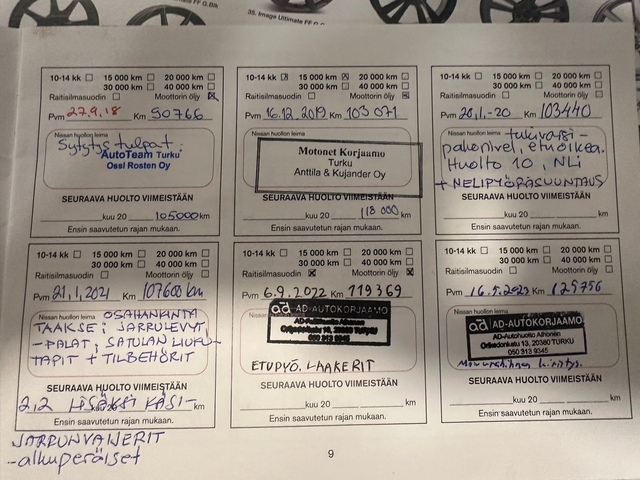 35. Image Ultimate FF G.G
10-14 kk 15 000 km 20 000 km
30 000 km 40 000 km
Raitisilmasuodin Moottorin öljy
Pvm 27.9.18 Km 90766
Nissan huollon leima
Sytytystulpat.
AutoTeam Turku
Ossi Rosten Oy
SEURAAVA HUOLTO VIIMEISTÄÄN
kuu 20 105000 km
Ensin saavutetun rajan mukaan.
10-14 kk 15 000 km 20 000 km
30 000 km 40 000 km
Raitisilmasuodin Moottorin öljy
Pvm 16.12.2019 Km 103 071
Nissan huollon leima
Motonet Korjaamo
Turku
Anttila & Kujander Oy
SEURAAVA HUOLTO VIIMEISTÄÄN
kuu 20 118 000 km
Ensin saavutetun rajan mukaan.
10-14 kk 15 000 km 20 000 km
30 000 km 40 000 km
Raitisilmasuodin Moottorin öljy
Pvm 20.1.-20 Km 103440
Nissan huollon leima tukivarsi-
pahonivel, etuoikea.
Huolto 10, NLi
+ NELIPYÖRÄSUUNTAUS
SEURAAVA HUOLTO VIIMEISTÄÄN
kuu 20 km
Ensin saavutetun rajan mukaan.
10-14 kk 15 000 km 20 000 km
30 000 km 40 000 km
Raitisilmasuodin Moottorin öljy
Pvm 21.1.2021 Km 107600 km
Nissan huollon leima OSAHANKINTA
TAAKSE: JARRULEVYT,
-PALAT, SATULAN LIUKU-
TAPIT + TILBEHÖRIT
SEURAAVA HUOLTO VIIMEISTÄÄN
2.2 LISÄKSI KÄSI-
kuu 20 km
Ensin saavutetun rajan mukaan.
JARRUNVAIJERIT
-alkuperäiset
10-14 kk 15 000 km 20 000 km
30 000 km 40 000 km
Raitisilmasuodin Moottorin öljy
Pvm 6.9.2022 Km 119369
ad AD-AUTOKORJAAMO
050 313 9345
ETUPYÖ. LAAKERIT
SEURAAVA HUOLTO VIIMEISTÄÄN
kuu 20 km
Ensin saavutetun rajan mukaan.
10-14 kk 15 000 km 20 000 km
30 000 km 40 000 km
Raitisilmasuodin Moottorin öljy
Pvm Km 125756
ad AD-AUTOKORJAAMO
AD-Autohuolto Alhonen
Oriketonkatu 13, 20380 TURKU
050 313 9345
SEURAAVA HUOLTO VIIMEISTÄÄN
kuu 20 km
Ensin saavutetun rajan mukaan.
9